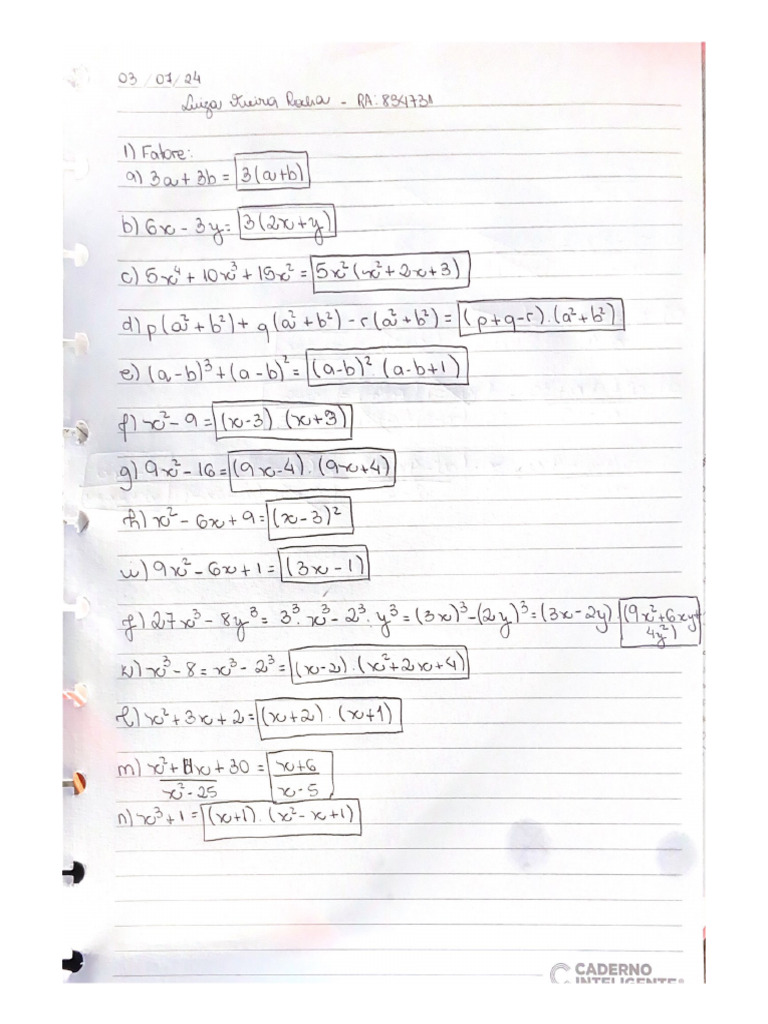 03/07/24
Luiza Vieira Rocha - RA: 834731
1) Fatore:
a) 3a + 3b = 3(a+b)
b) 6x - 3y = 3(2x+y)
c) 5x⁴ + 10x³ + 15x² = 5x²(x² + 2x + 3)
d) p(a² + b²) + q(a² + b²) - r(a² + b²) = (p+q-r).(a²+b²)
e) (a-b)³ + (a-b)² = (a-b)² . (a-b+1)
f) x² - 9 = (x-3) (x+3)
g) 9x² - 16 = (9x-4).(9x+4)
h) x² - 6x + 9 = (x-3)²
i) 9x² - 6x + 1 = (3x - 1)
j) 27x³ - 8y³ = 3³.x³ - 2³.y³ = (3x)³ - (2y)³ = (3x - 2y) . (9x² + 6xy +
4y²)
k) x³ - 8 = x³ - 2³ = (x-2).(x²+2x+4)
l) x² + 3x + 2 = (x+2) . (x+1)
m) x² + 11x + 30 = x+6
x² - 25 x - 5
n) x³ + 1 = (x+1).(x² - x + 1)
CADERNO
INTELIGENTE®